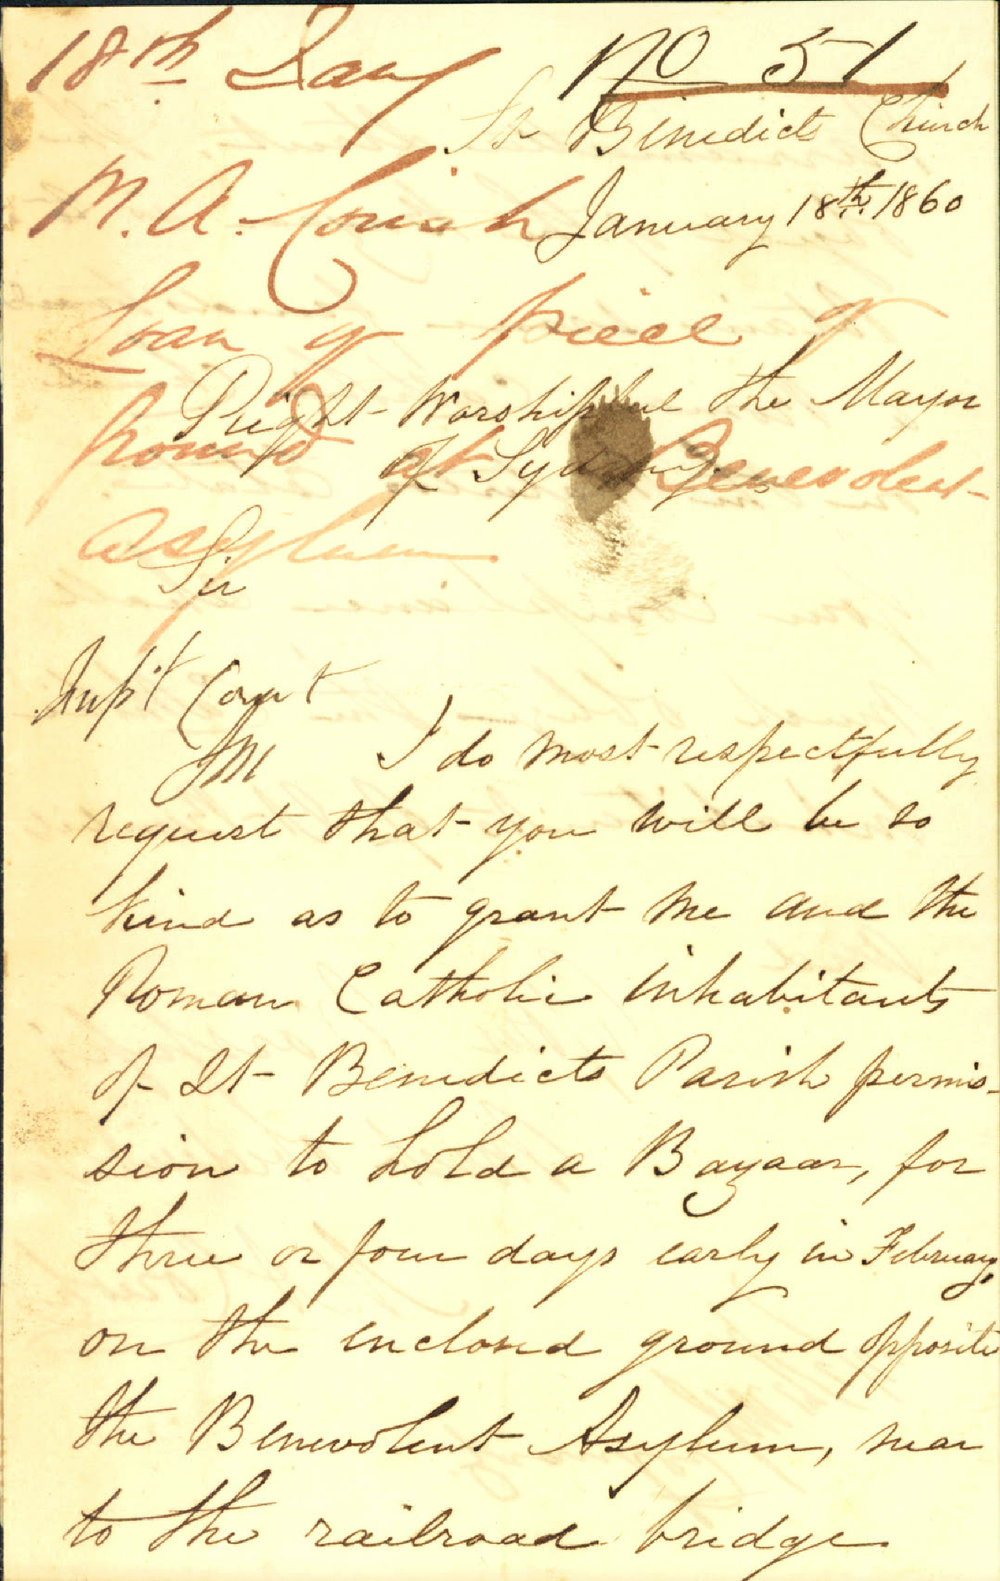 18th Jany No 51
St Benedicts Church
M. A. Corish January 18th 1860
Loan of piece of
Right Worshipful the Mayor
Ground at Benevolent
of Sydney
Asylum
Sir
Impt Comt
JM
I do most respectfully
request that you will be so
kind as to grant me and the
Roman Catholic inhabitants
of St Benedicts Parish permis-
sion to hold a Bazaar, for
three or four days early in February,
on the enclosed ground opposite
the Benevolent Asylum, near
to the railroad bridge